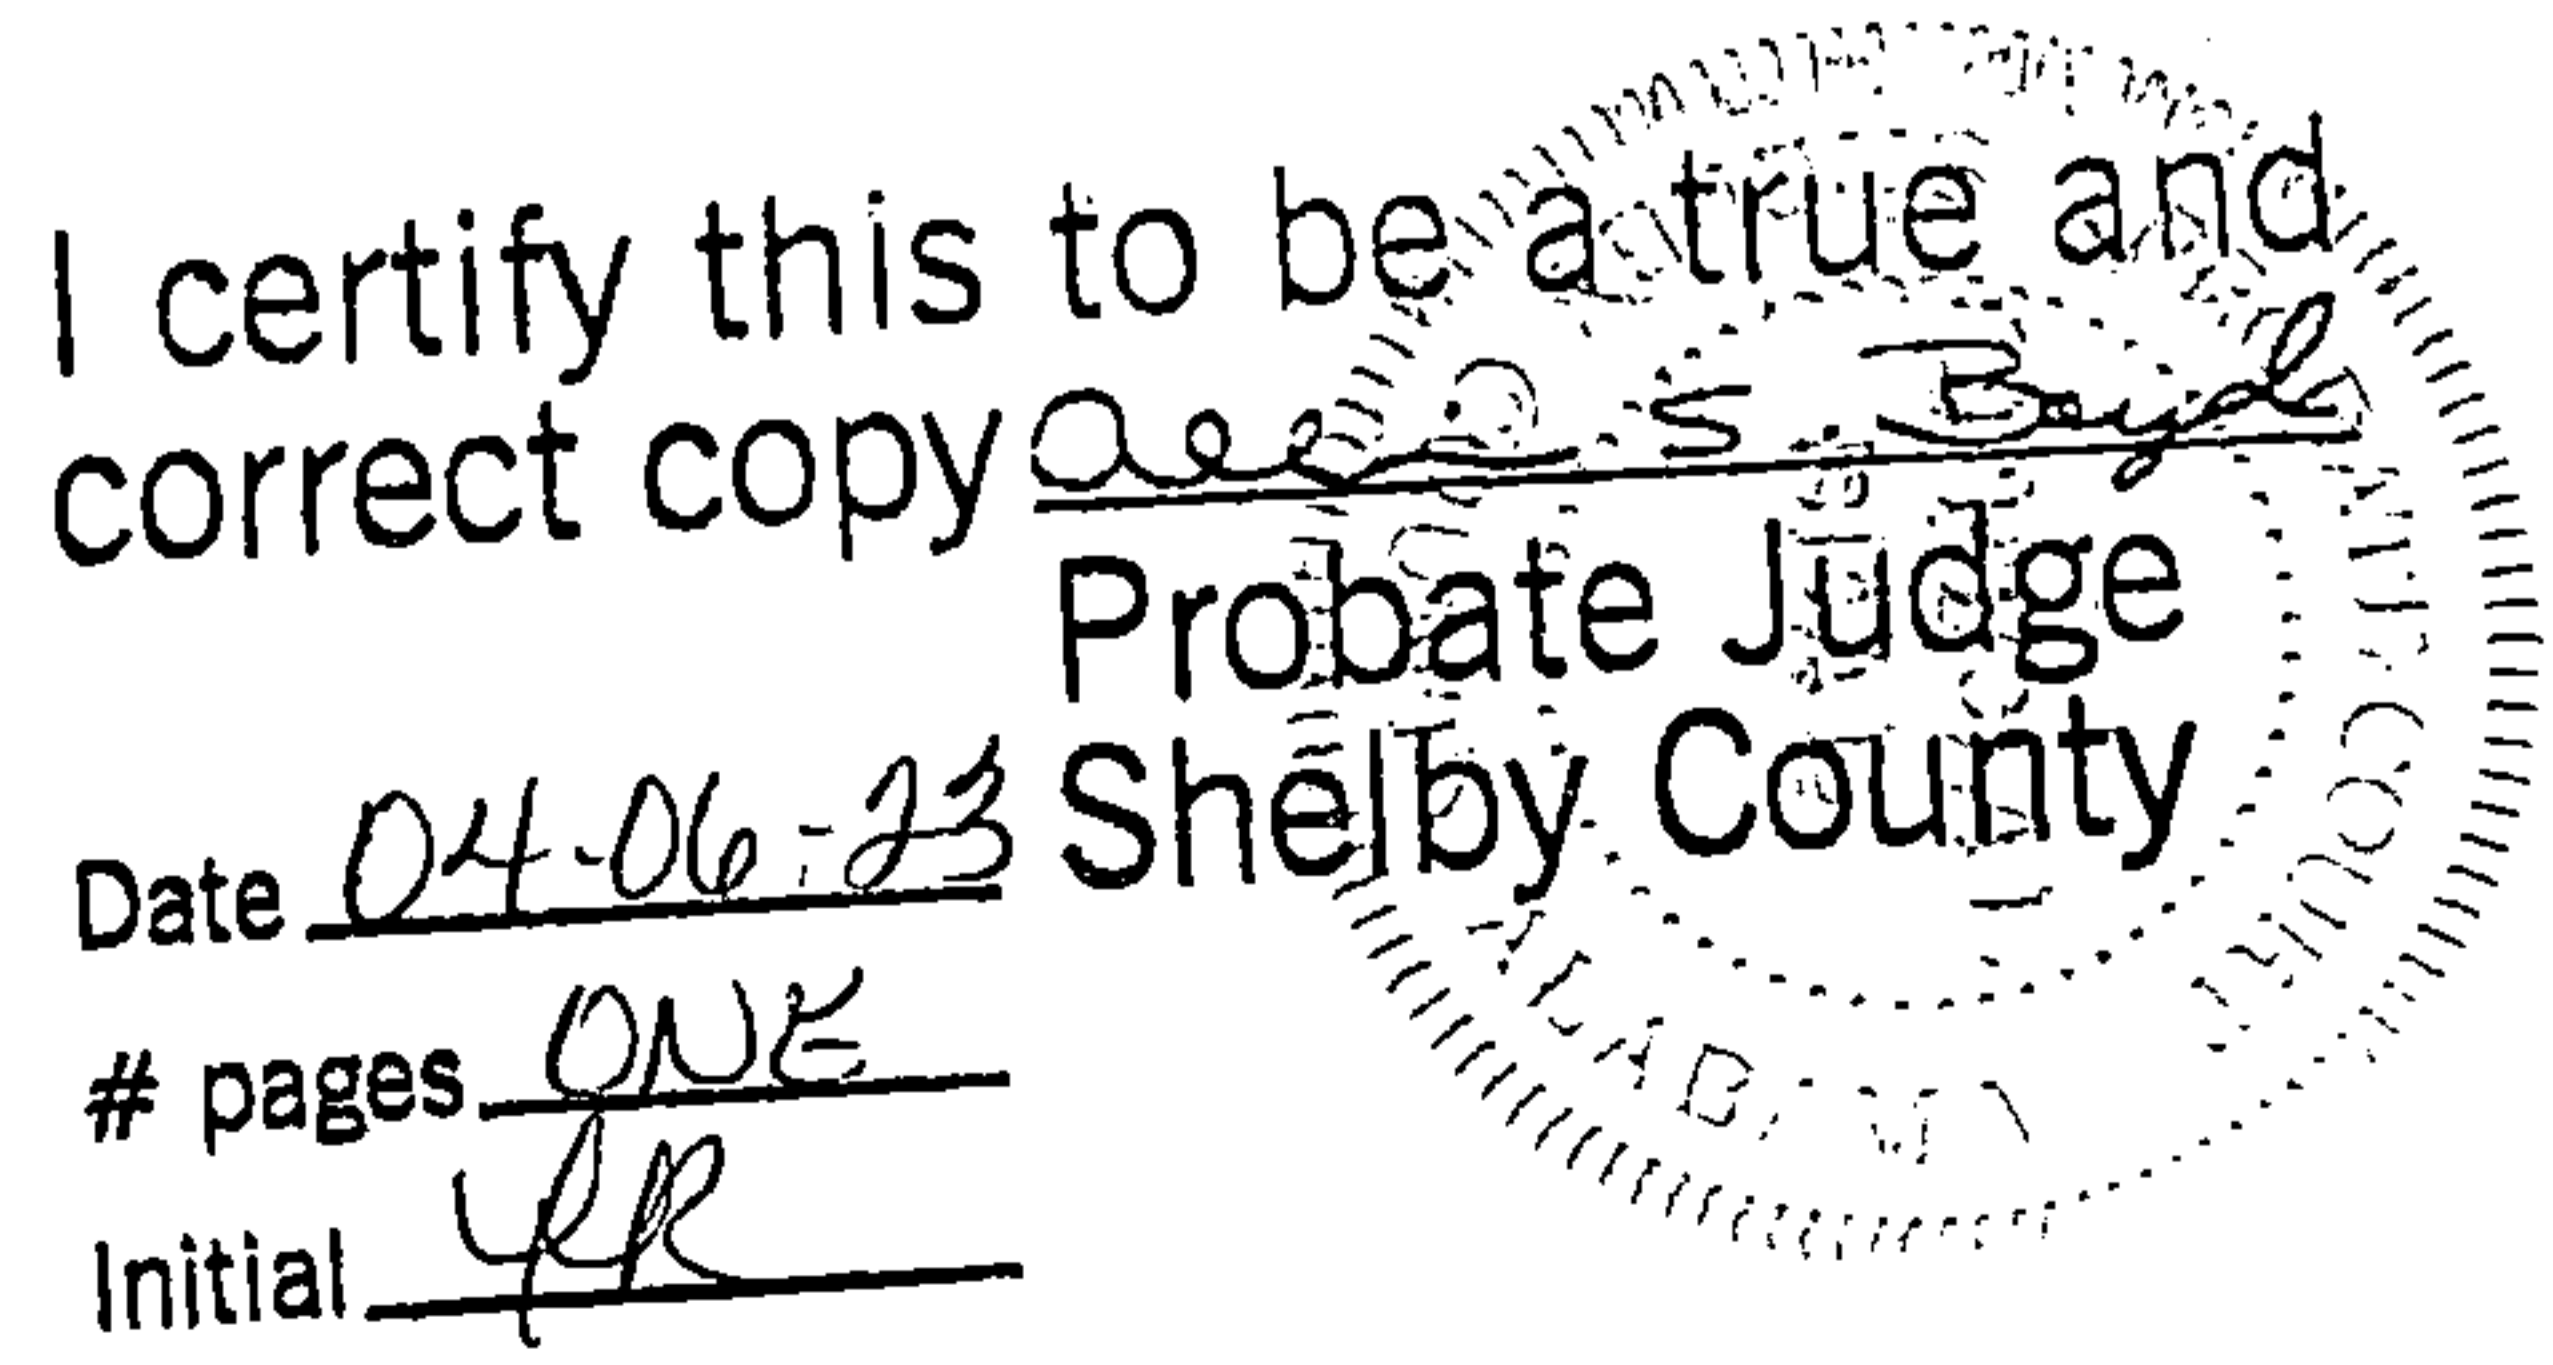 I certify this to be a true and
correct copy Allison S. Boyd
Probate Judge
Shelby County
Date 04-06-23
# pages ONE
Initial YR
ALABAMA